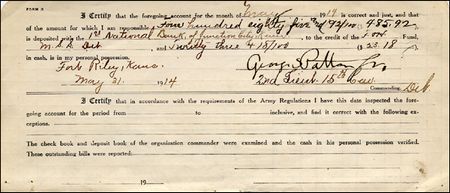 FORM 3
I Certify that the foregoing account for the month of 191 is correct and just, and that
of the amount for which I am responsible Four Hundred eighty five and 92/100 ($ 485.92
is deposited with the 1st National Bank of Junction City, to the credit of
M.S.S. Det and Twenty three & 18/100 ($ 23.18 )
in cash, is in my personal possession.
Fort Riley, Kans. George S Patton Jr.
May 31 1914 2nd Lieut 15th Cav
Commanding Det
I Certify that in accordance with the requirements of the Army Regulations I have this date inspected the fore-
going account for the period from to inclusive, and find it correct with the following ex-
ceptions.
The check book and deposit book of the organization commander were examined and the cash in his personal possession verified.
These outstanding bills were reported:
19